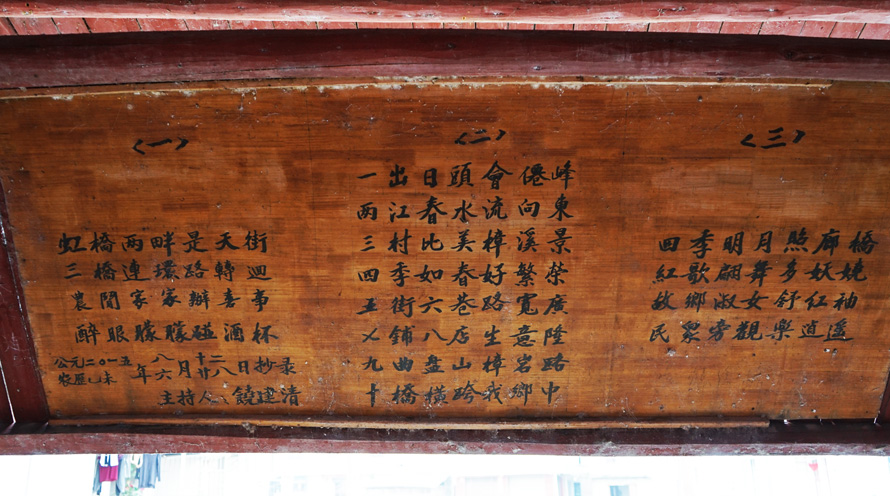 〈一〉
虹橋兩畔是天街
三橋連環路轉迴
農閒家家辦喜事
醉眼朦朧碰酒杯
公元二〇一五年八月十二日抄录
农历乙未年六月廿八日抄录
主持人：饒建清
〈二〉
一出日頭會僊峰
兩江春水流向東
三村比美樟溪景
四季如春好繁榮
五街六巷路寬廣
乂铺八店生意隆
九曲盘山樟岩路
十橋橫跨我鄉中
〈三〉
四季明月照廊橋
紅歌翩舞多妖嬈
故鄉淑女舒红袖
民衆旁觀樂逍遥